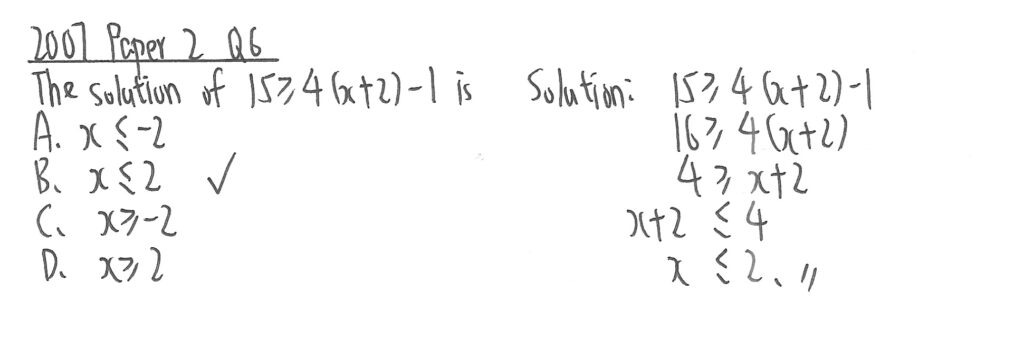 2007 Paper 2 Q6
The solution of 15⩾4(x+2)-1 is
A. x⩽-2
B. x⩽2 ✓
C. x⩾-2
D. x⩾2
Solution: 15⩾4(x+2)-1
16⩾4(x+2)
4⩾x+2
x+2⩽4
x⩽2. //